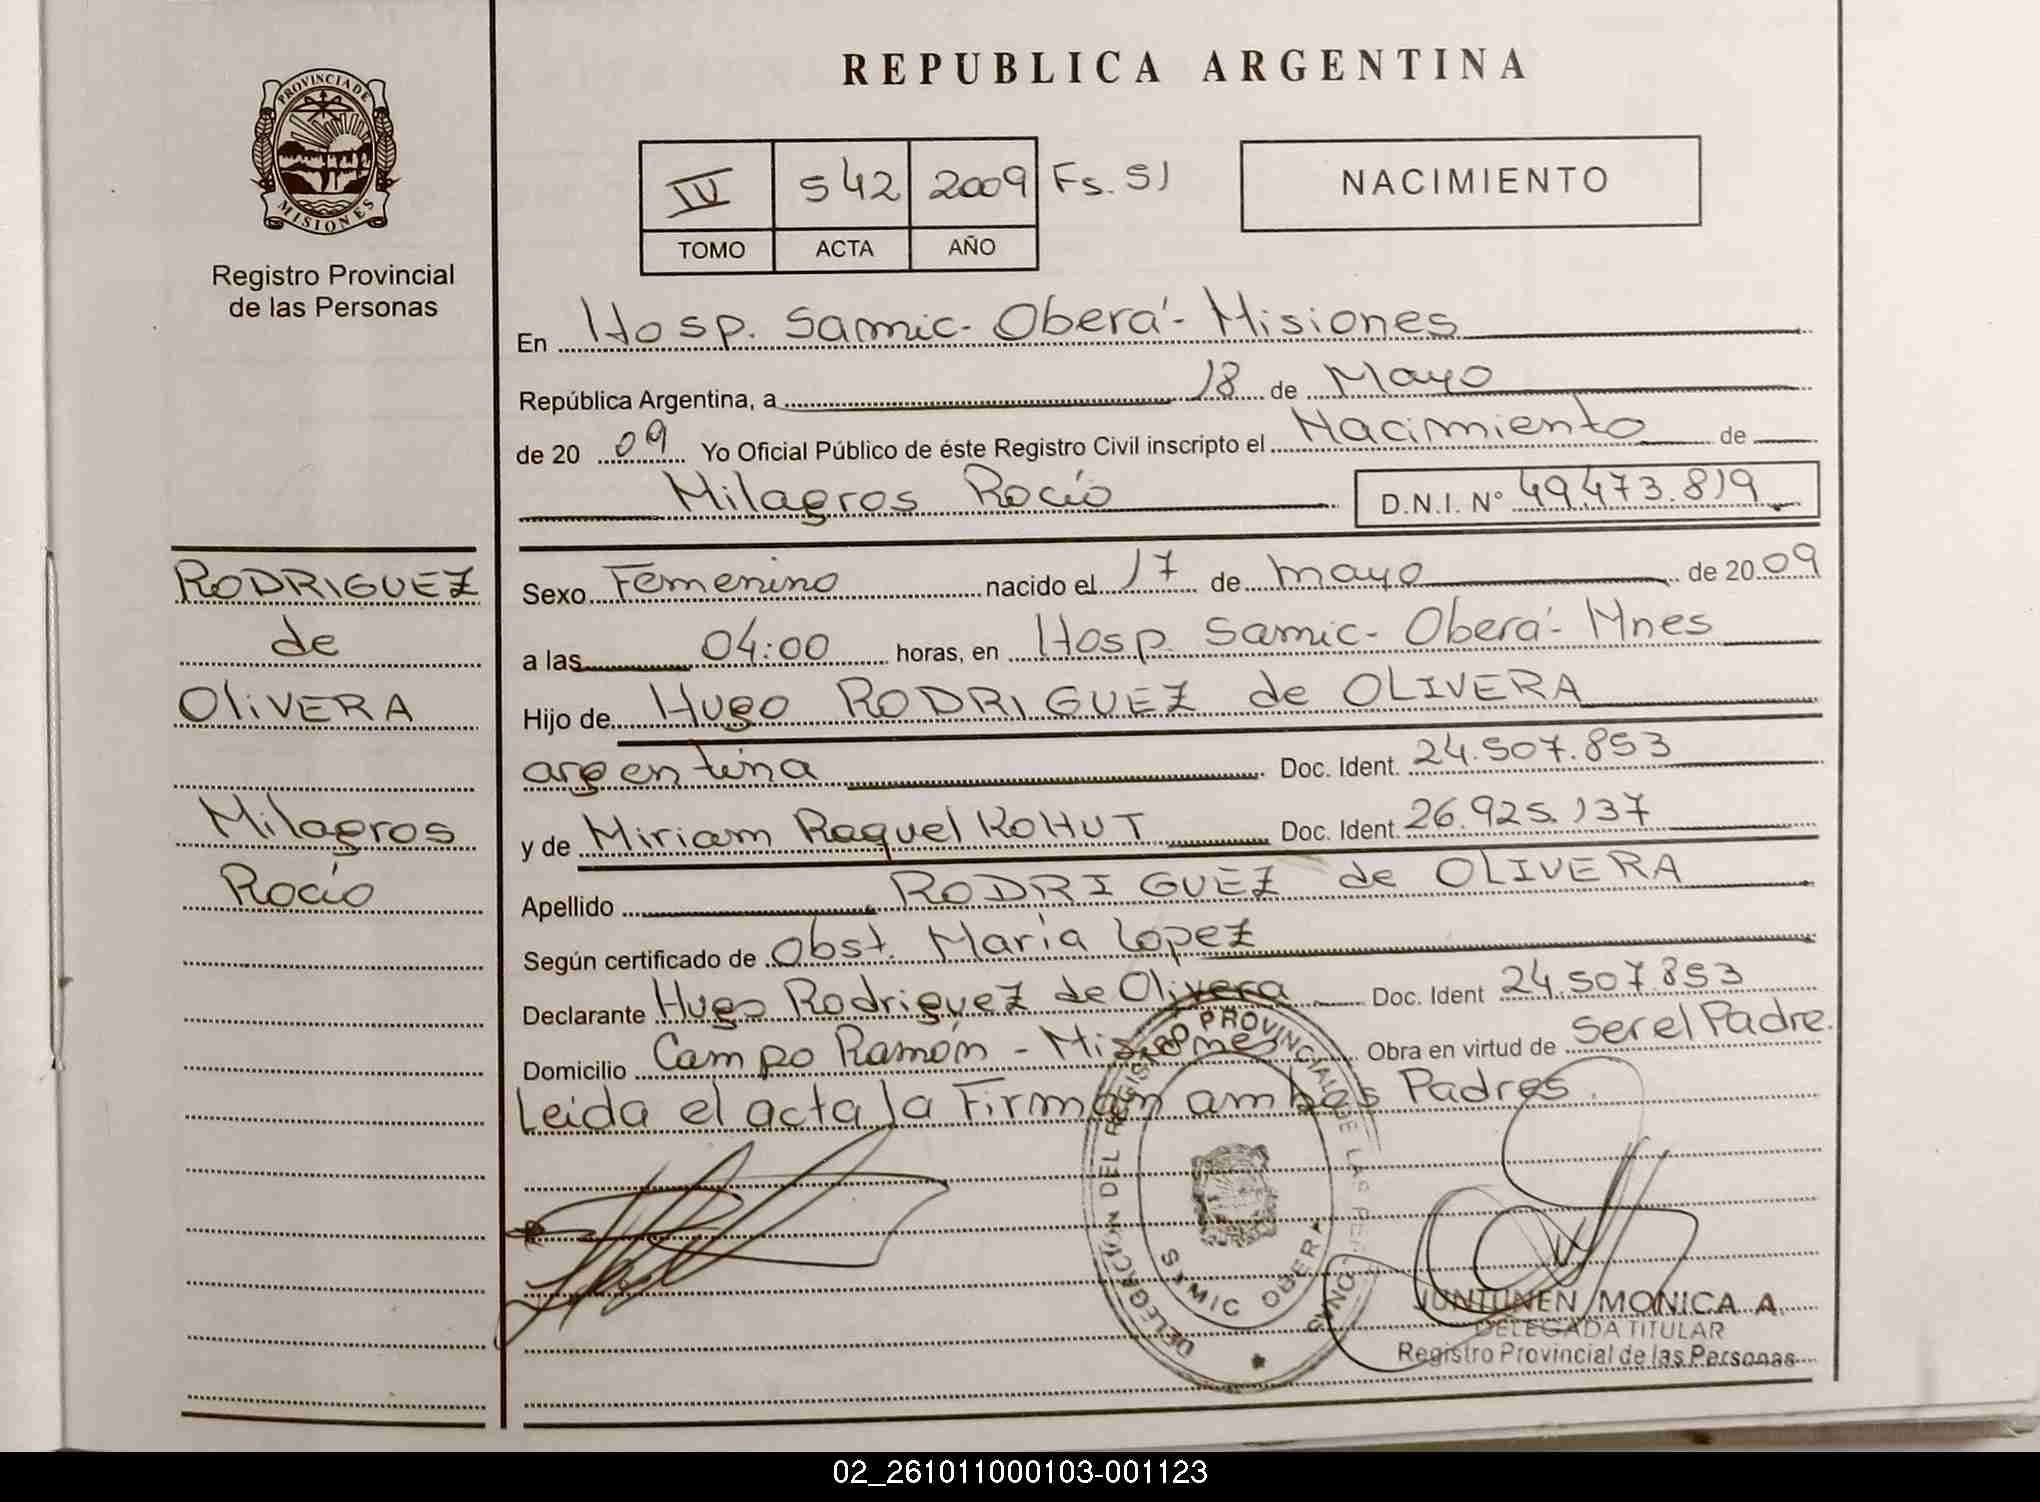 PROVINCIA DE
MISIONES
Registro Provincial
de las Personas
REPUBLICA ARGENTINA
IV 542 2009 Fs. 51
TOMO ACTA AÑO
NACIMIENTO
En Hosp. Samic- Oberá- Misiones
República Argentina, a 18 de Mayo
de 20 09 Yo Oficial Público de éste Registro Civil inscripto el Nacimiento de
Milagros Rocío D.N.I. Nº 49.473.819
RODRIGUEZ
de
OLIVERA
Milagros
Rocío
Sexo Femenino nacido el 17 de mayo de 20 09
a las 04:00 horas, en Hosp. Samic- Oberá- Mnes
Hijo de Hugo RODRIGUEZ de OLIVERA
argentina Doc. Ident. 24.507.853
y de Miriam Raquel KOHUT Doc. Ident. 26.925.137
Apellido RODRIGUEZ de OLIVERA
Según certificado de Obst. María Lopez
Declarante Hugo Rodriguez de Olivera Doc. Ident 24.507.853
Domicilio Campo Ramón - Misiones Obra en virtud de ser el Padre.
Leida el acta la Firman ambos Padres.
DELEGACION DEL REGISTRO PROVINCIAL DE LAS PERSONAS
SAMIC OBERA
JUNTUNEN MONICA A.
DELEGADA TITULAR
Registro Provincial de las Personas
02_261011000103-001123